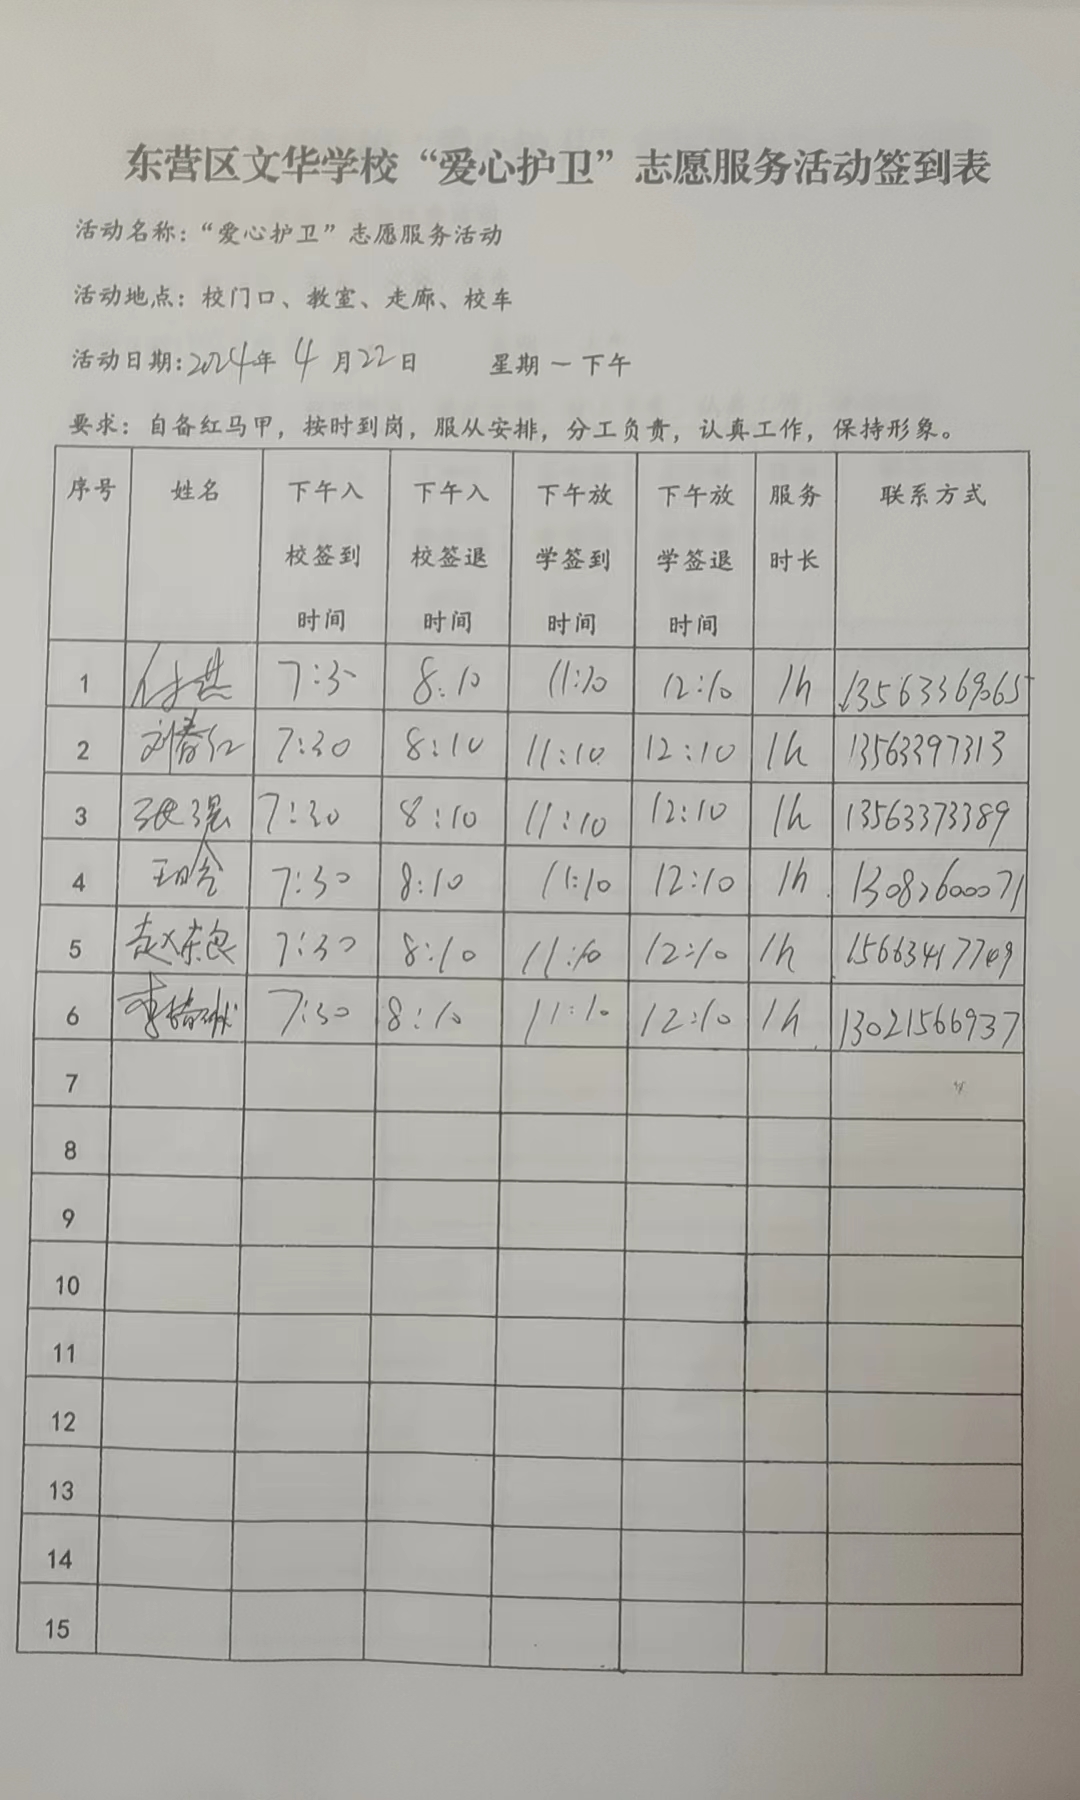 东营区文华学校“爱心护卫”志愿服务活动签到表
活动名称：“爱心护卫”志愿服务活动
活动地点：校门口、教室、走廊、校车
活动日期：2024年 4 月22日 星期一下午
要求：自备红马甲，按时到岗，服从安排，分工负责，认真工作，保持形象。
序号 姓名 下午入校签到时间 下午入校签退时间 下午放学签到时间 下午放学签退时间 服务时长 联系方式
1 7:3 8:10 11:10 12:10 1h 13563369065
2 刘春红 7:30 8:10 11:10 12:10 1h 13563397313
3 张强 7:30 8:10 11:10 12:10 1h 13563373389
4 7:30 8:10 11:10 12:10 1h 13082600071
5 7:30 8:10 11:10 12:10 1h 15663417749
6 李 7:30 8:10 11:10 12:10 1h 13021566937
7
8
9
10
11
12
13
14
15